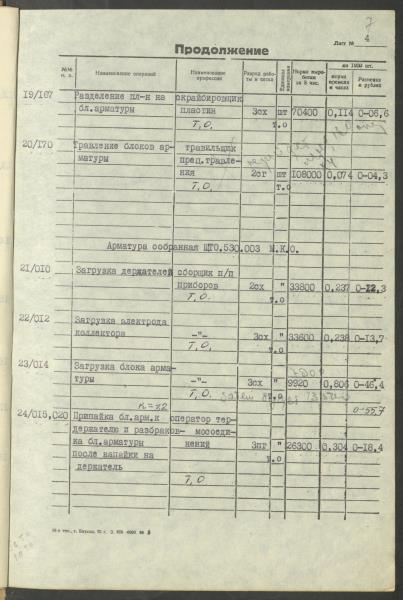 7
Продолжение
Лист № 4
№№ п. п. Наименование операций Наименование профессии Разряд работы и сетка Единица измерения Норма выработки за 8 час. на 1000 шт.
норма времени в часах Расценки в рублях
19/167 Разделение пл-н на скрайбировщик
бл.арматуры пластин 3сх шт 70400 0,114 0-06,6
Т,О, т.о
20/170 Травление блоков ар- травильщик
матуры прец.травле-
ния 2сг шт 108000 0,074 0-04,3
Т,О, т.о
Арматура собранная ЩТ0.530.003 М.К.О.
21/010 Загрузка держателей сборщик п/п
приборов 2сх " 33800 0,237 0-12,3
Т,О, т.о
22/012 Загрузка электрода
коллектора -"- 3сх " 33600 0,238 0-13,7
Т,О, т.о
23/014 Загрузка блока арма-
туры -"- 3сх " 9920 0,806 0-46,4
Т,О, т.о
к=х2 0-55,7
24/015,020 Припайка бл.арм.к оператор тер-
держателю и разбраков- мосоеди-
ка бл.арматуры нений 3пг " 26300 0.304 0-18,4
после напайки на т.о
держатель
Т,О